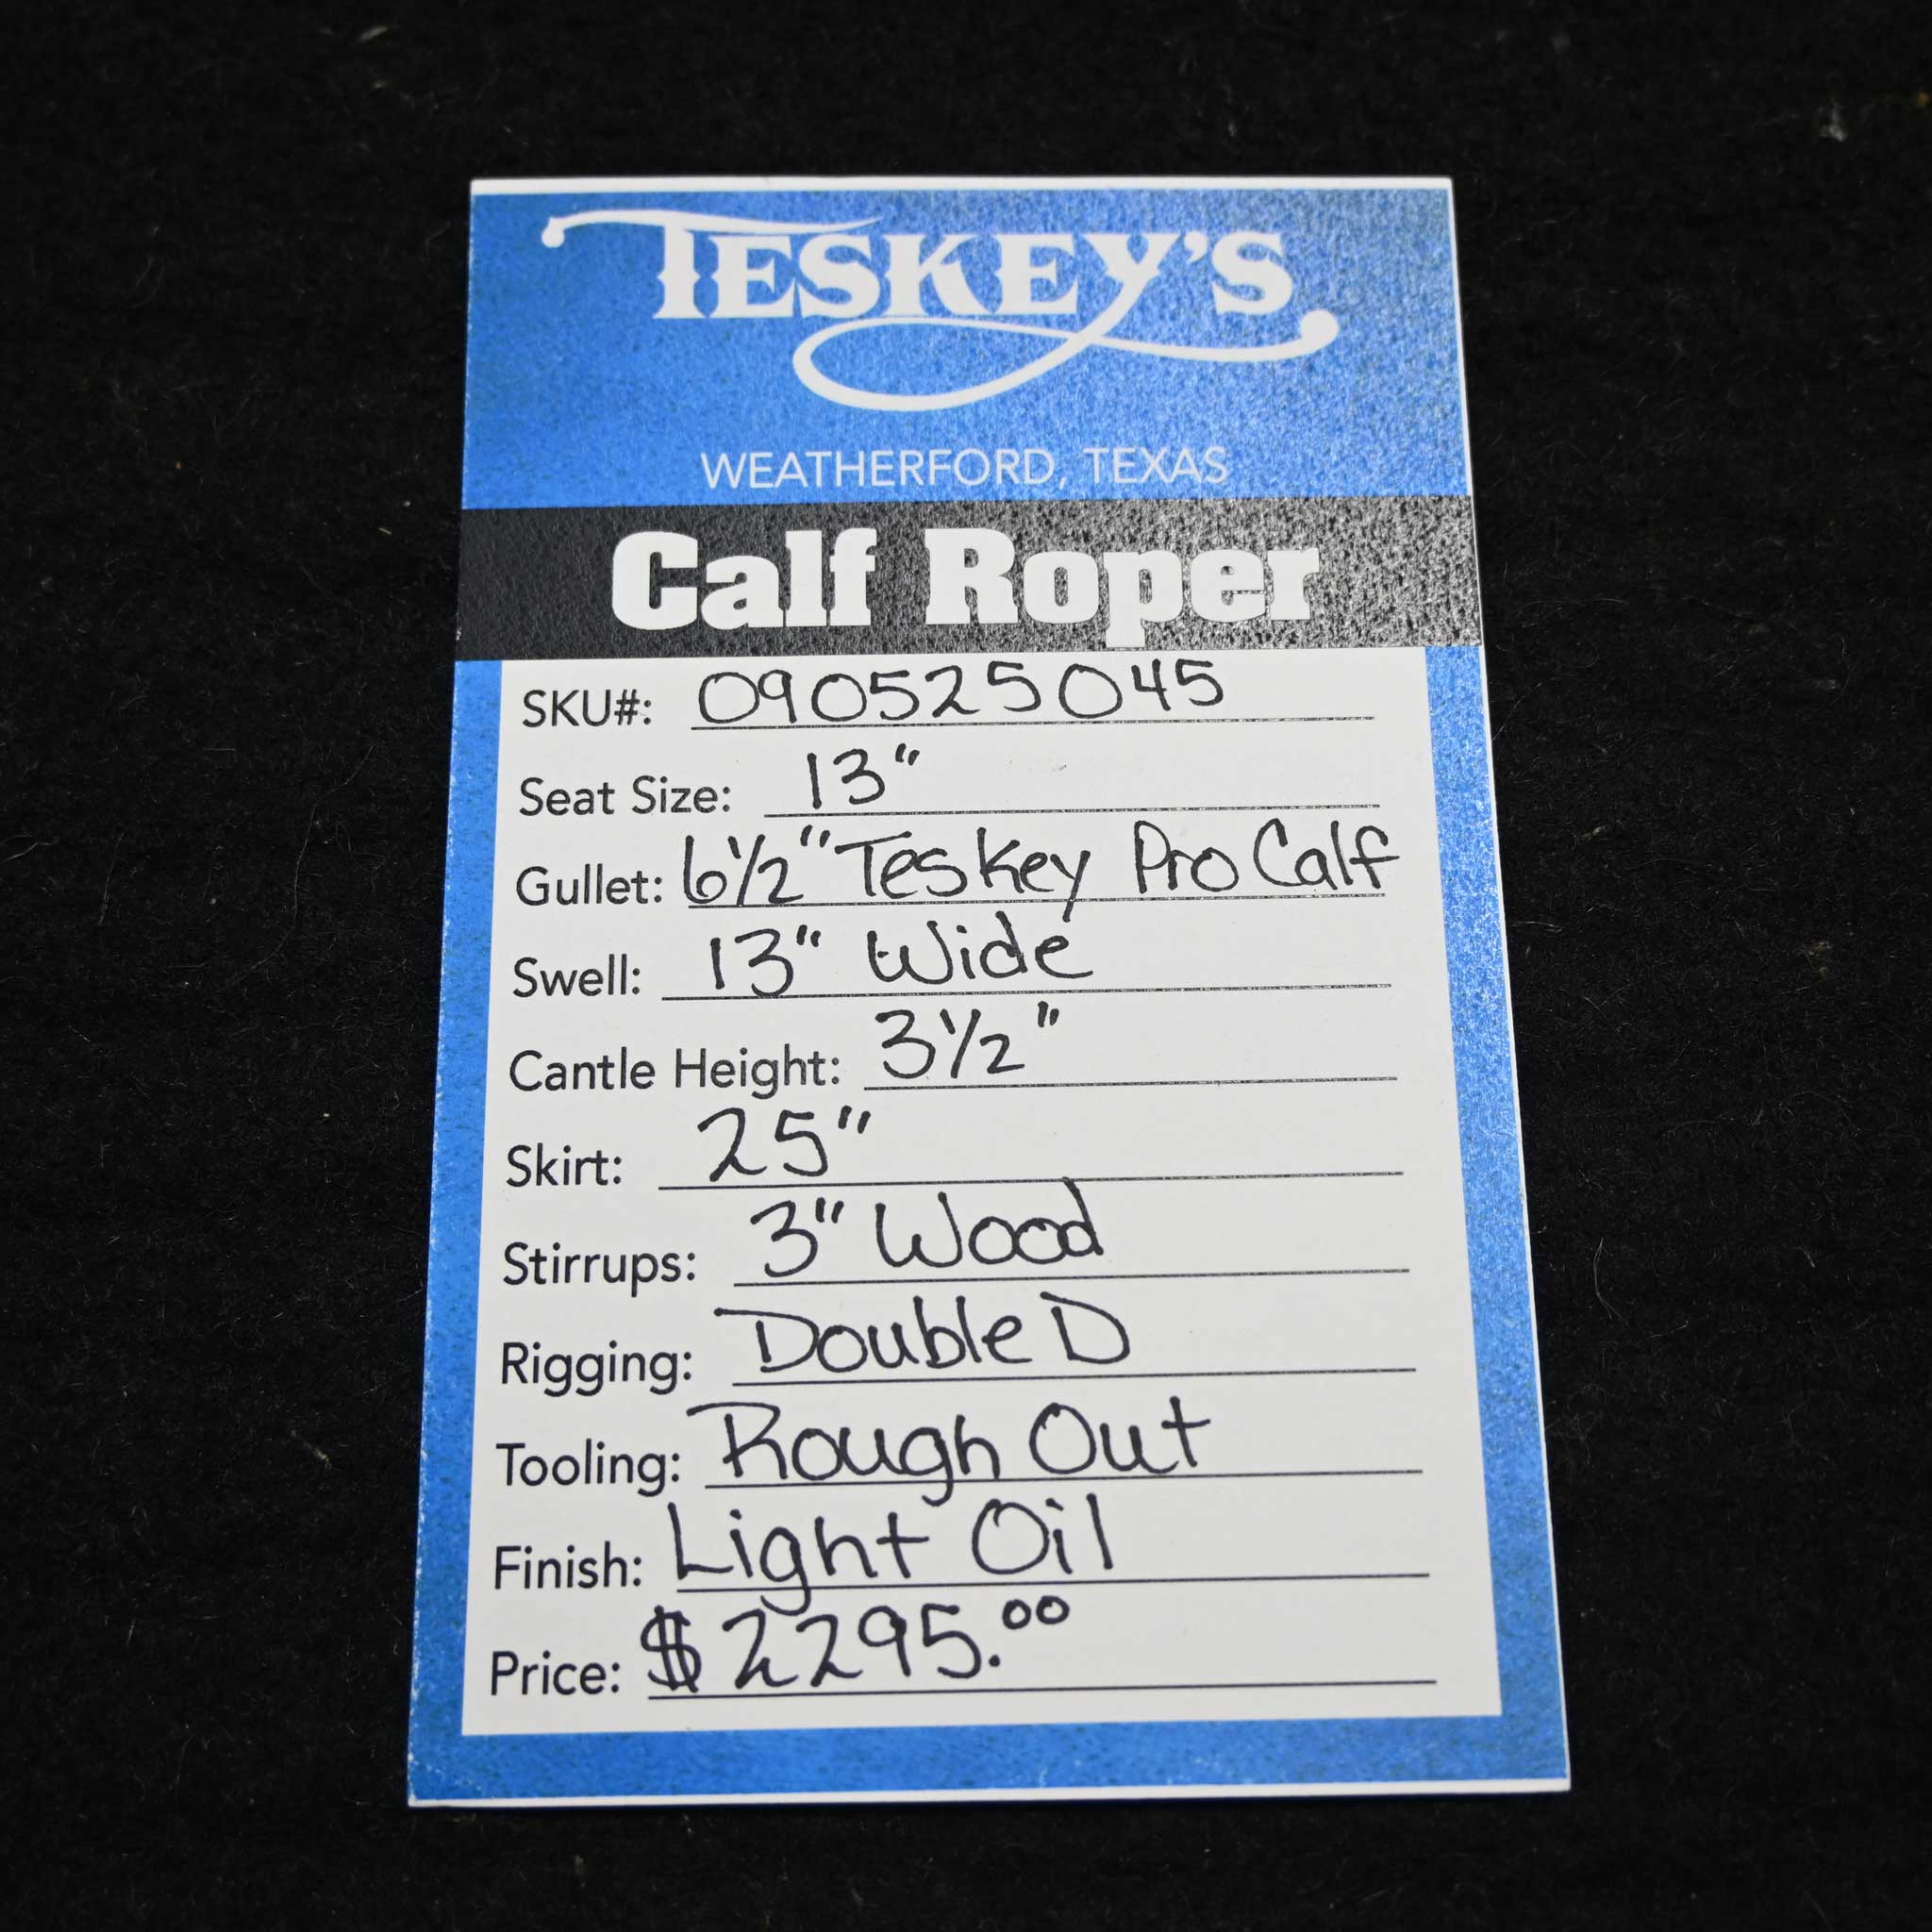 TESKEY'S
WEATHERFORD, TEXAS
Calf Roper
SKU#: 090525045
Seat Size: 13"
Gullet: 6 1/2" Teskey Pro Calf
Swell: 13" Wide
Cantle Height: 3 1/2"
Skirt: 25"
Stirrups: 3" Wood
Rigging: Double D
Tooling: Rough Out
Finish: Light Oil
Price: $2295.00